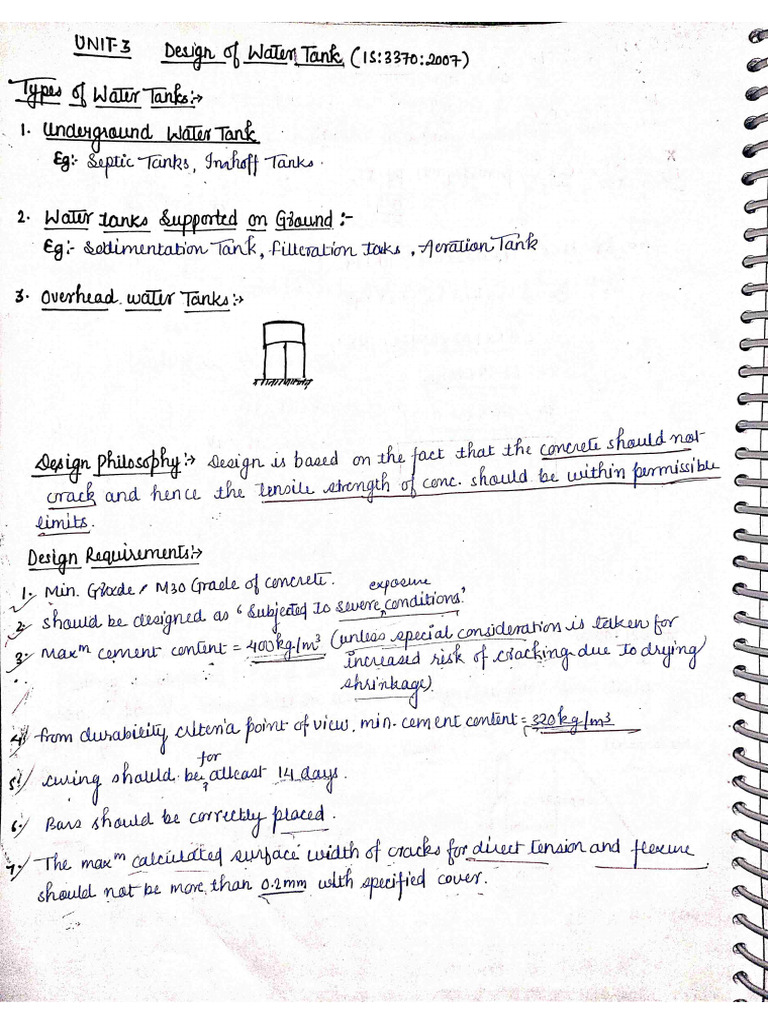 UNIT-3 Design of Water Tank (IS:3370:2007)
Types of Water Tanks:→
1. Underground Water Tank
Eg:- Septic Tanks, Imhoff Tanks.
2. Water tanks Supported on Ground:-
Eg:- Sedimentation Tank, Filteration taks, Aeration Tank
3. Overhead water Tanks:→
Design Philosophy:→ Design is based on the fact that the concrete should not
crack and hence the tensile strength of conc. should be within permissible
limits.
Design Requirements:→
1. Min. Grade / M30 Grade of concrete.
2. should be designed as 'Subjected to severe exposure conditions.'
3. maxm cement content = 400kg/m3 (unless special consideration is taken for
increased risk of cracking due to drying
shrinkage).
4. from durability criteria point of view, min. cement content = 320kg/m3
5. curing should be for atleast 14 days.
6. Bars should be correctly placed.
7. The maxm calculated surface width of cracks for direct tension and flexure
should not be more than 0.2mm with specified cover.